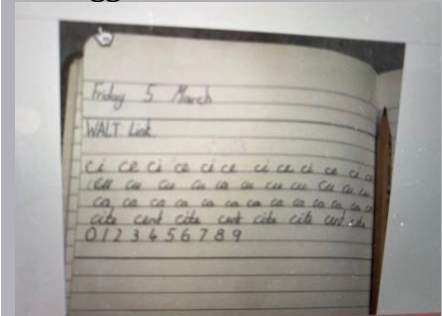 Friday 5 March
WALT: Link
ci ce ci ce ci ce ci ce ci ce ci ce
cu cu cu cu cu cu cu cu cu cu
ca ca ca ca ca ca ca ca ca ca
cite cent cite cent cite cite cent cite
0 1 2 3 4 5 6 7 8 9